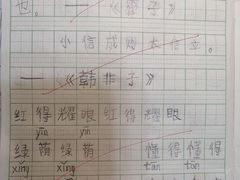 也。——《子》
小信成则大信立。
——《韩非子》
红得耀眼红得耀眼
yīn yīn
绿荫绿荫 懂得懂得
xǐng xǐng tǎn tǎn